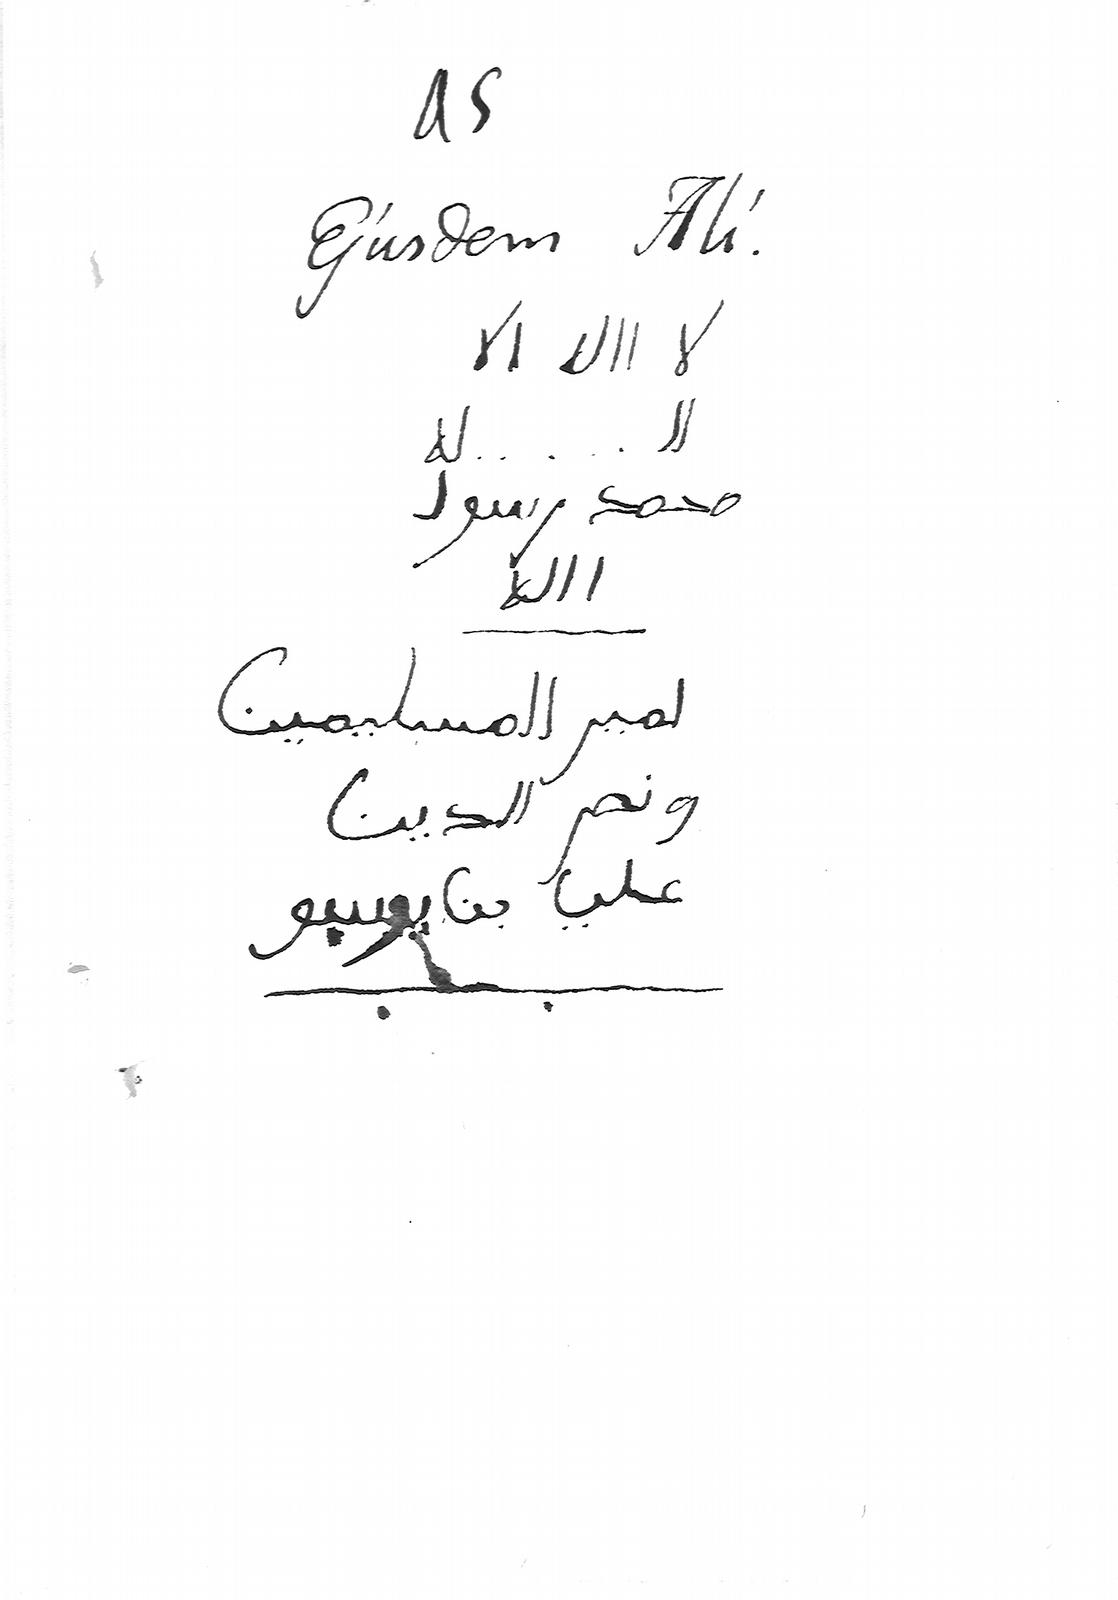 AS
Ejusdem Ali.
لا االه الا
الـ.....له
محمد رسول
االله
امير المسليمين
ونصر الدين
علي بن يوسيو